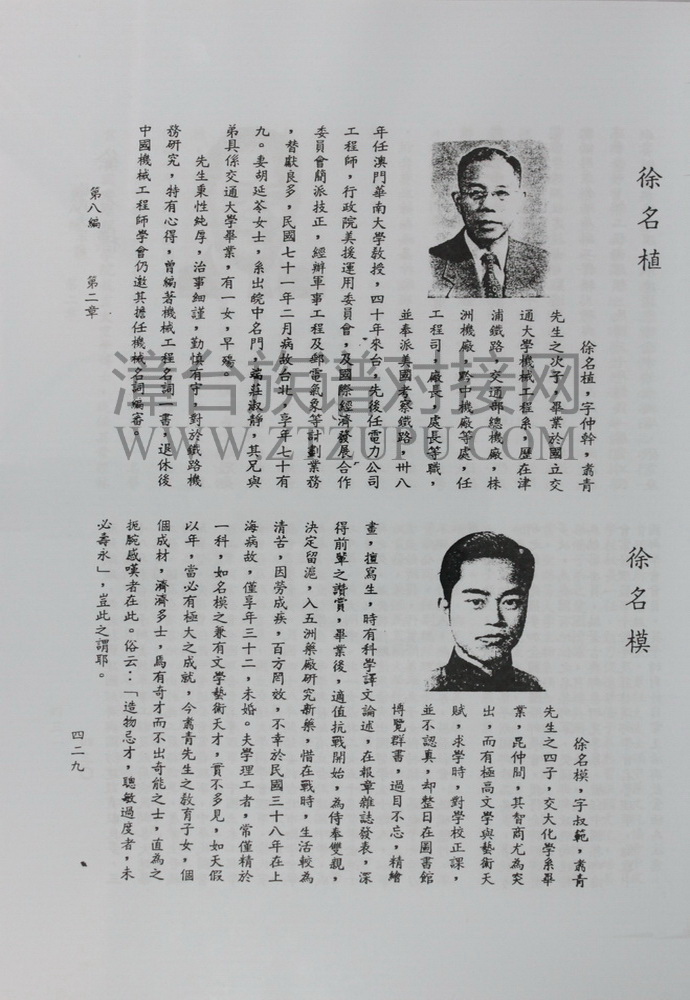 徐名植
徐名植，字仲幹，翥青
先生之次子，畢業於國立交
通大學機械工程系，歷在津
浦鐵路，交通部總機廠，株
洲機廠，黔中機廠等處，任
工程司，廠長，處長等職，
並奉派美國考察鐵路，卅八
年任澳門華南大學教授，四十年來台，先後任電力公司
工程師，行政院美援運用委員會，及國際經濟發展合作
委員會簡派技正，經辦軍事工程及郵電氣象等計劃業務
，贊獻良多，民國七十一年二月病故台北，享年七十有
九。妻胡延苓女士，系出皖中名門，端莊淑靜，其兄與
弟具係交通大學畢業，有一女，早殤。
先生秉性純厚，治事細謹，勤慎有守，對於鐵路機
務研究，特有心得，曾編著機械工程名詞一書，退休後
中國機械工程師學會仍邀其擔任機械名詞編審。
第八編 第二章
徐名模
徐名模，字叔範，翥青
先生之四子，交大化學系畢
業，昆仲間，其智商尤為突
出，而有極高文學與藝術天
賦，求學時，對學校正課，
並不認真，却整日在圖書館
博覽群書，過目不忘，精繪
畫，擅寫生，時有科學譯文論述，在報章雜誌發表，深
得前輩之讚賞，畢業後，適值抗戰開始，為侍奉雙親，
決定留滬，入五洲藥廠研究新藥，惜在戰時，生活較為
清苦，因勞成疾，百方罔效，不幸於民國三十八年在上
海病故，僅享年三十二，未婚。夫學理工者，常僅精於
一科，如名模之兼有文學藝術天才，實不多見，如天假
以年，當必有極大之成就，今翥青先生之教育子女，個
個成材，濟濟多士，焉有奇才而不出奇能之士，直為之
扼腕感嘆者在此。俗云：「造物忌才，聰敏過度者，未
必壽永」，豈此之謂耶。
四二九
漳台族谱对接网
WWW.ZTZUPU.COM